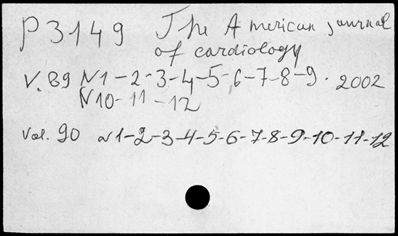 P3149 The American journal
of cardiology
V. 89 N1-2-3-4-5-6-7-8-9. 2002
N10-11-12
Vol. 90 N1-2-3-4-5-6-7-8-9-10-11-12